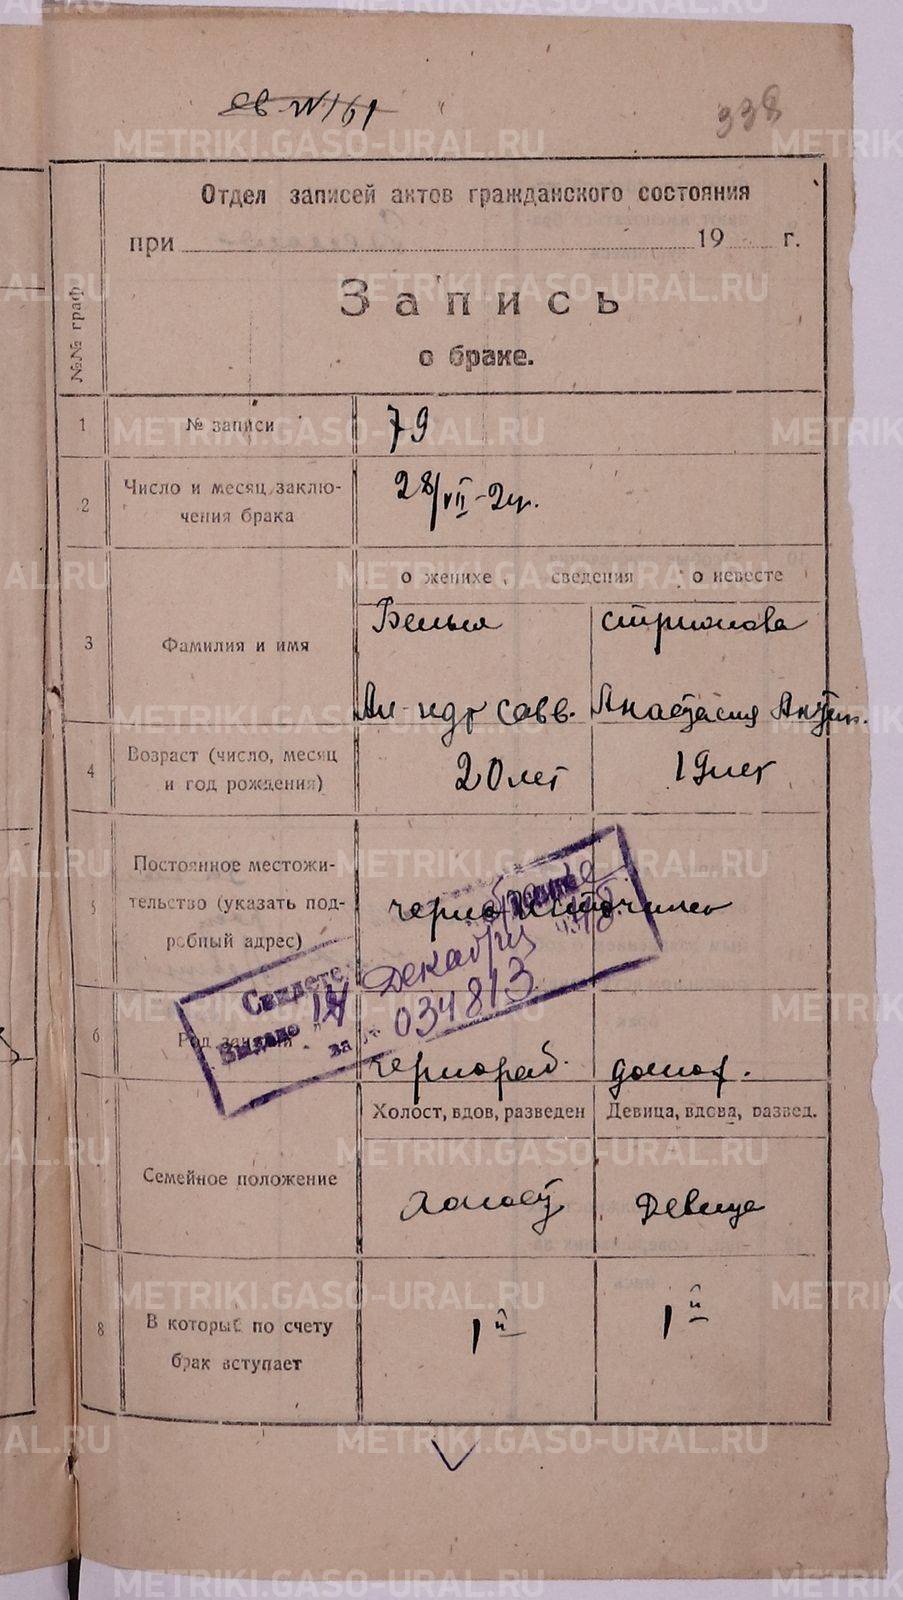 св. №161
338
Отдел записей актов гражданского состояния
при 19 г.
№№ граф
Запись
о браке.
1 № записи 79
2 Число и месяц заклю-
чения брака 28/VII-24.
о женихе сведения о невесте
3 Фамилия и имя
Ал-ндр Савв. Анастасия
4 Возраст (число, месяц
и год рождения) 20 лет 19 лет
5 Постоянное местожи-
тельство (указать под-
робный адрес)
черноисточинск
Свидете
Выдано 14 декабря
за № 034813
6 Род занятий чернораб. домох.
Холост, вдов, разведен Девица, вдова, развед.
Семейное положение холост девица
8 В который по счету
брак вступает 1й 1й
METRIKI.GASO-URAL.RU